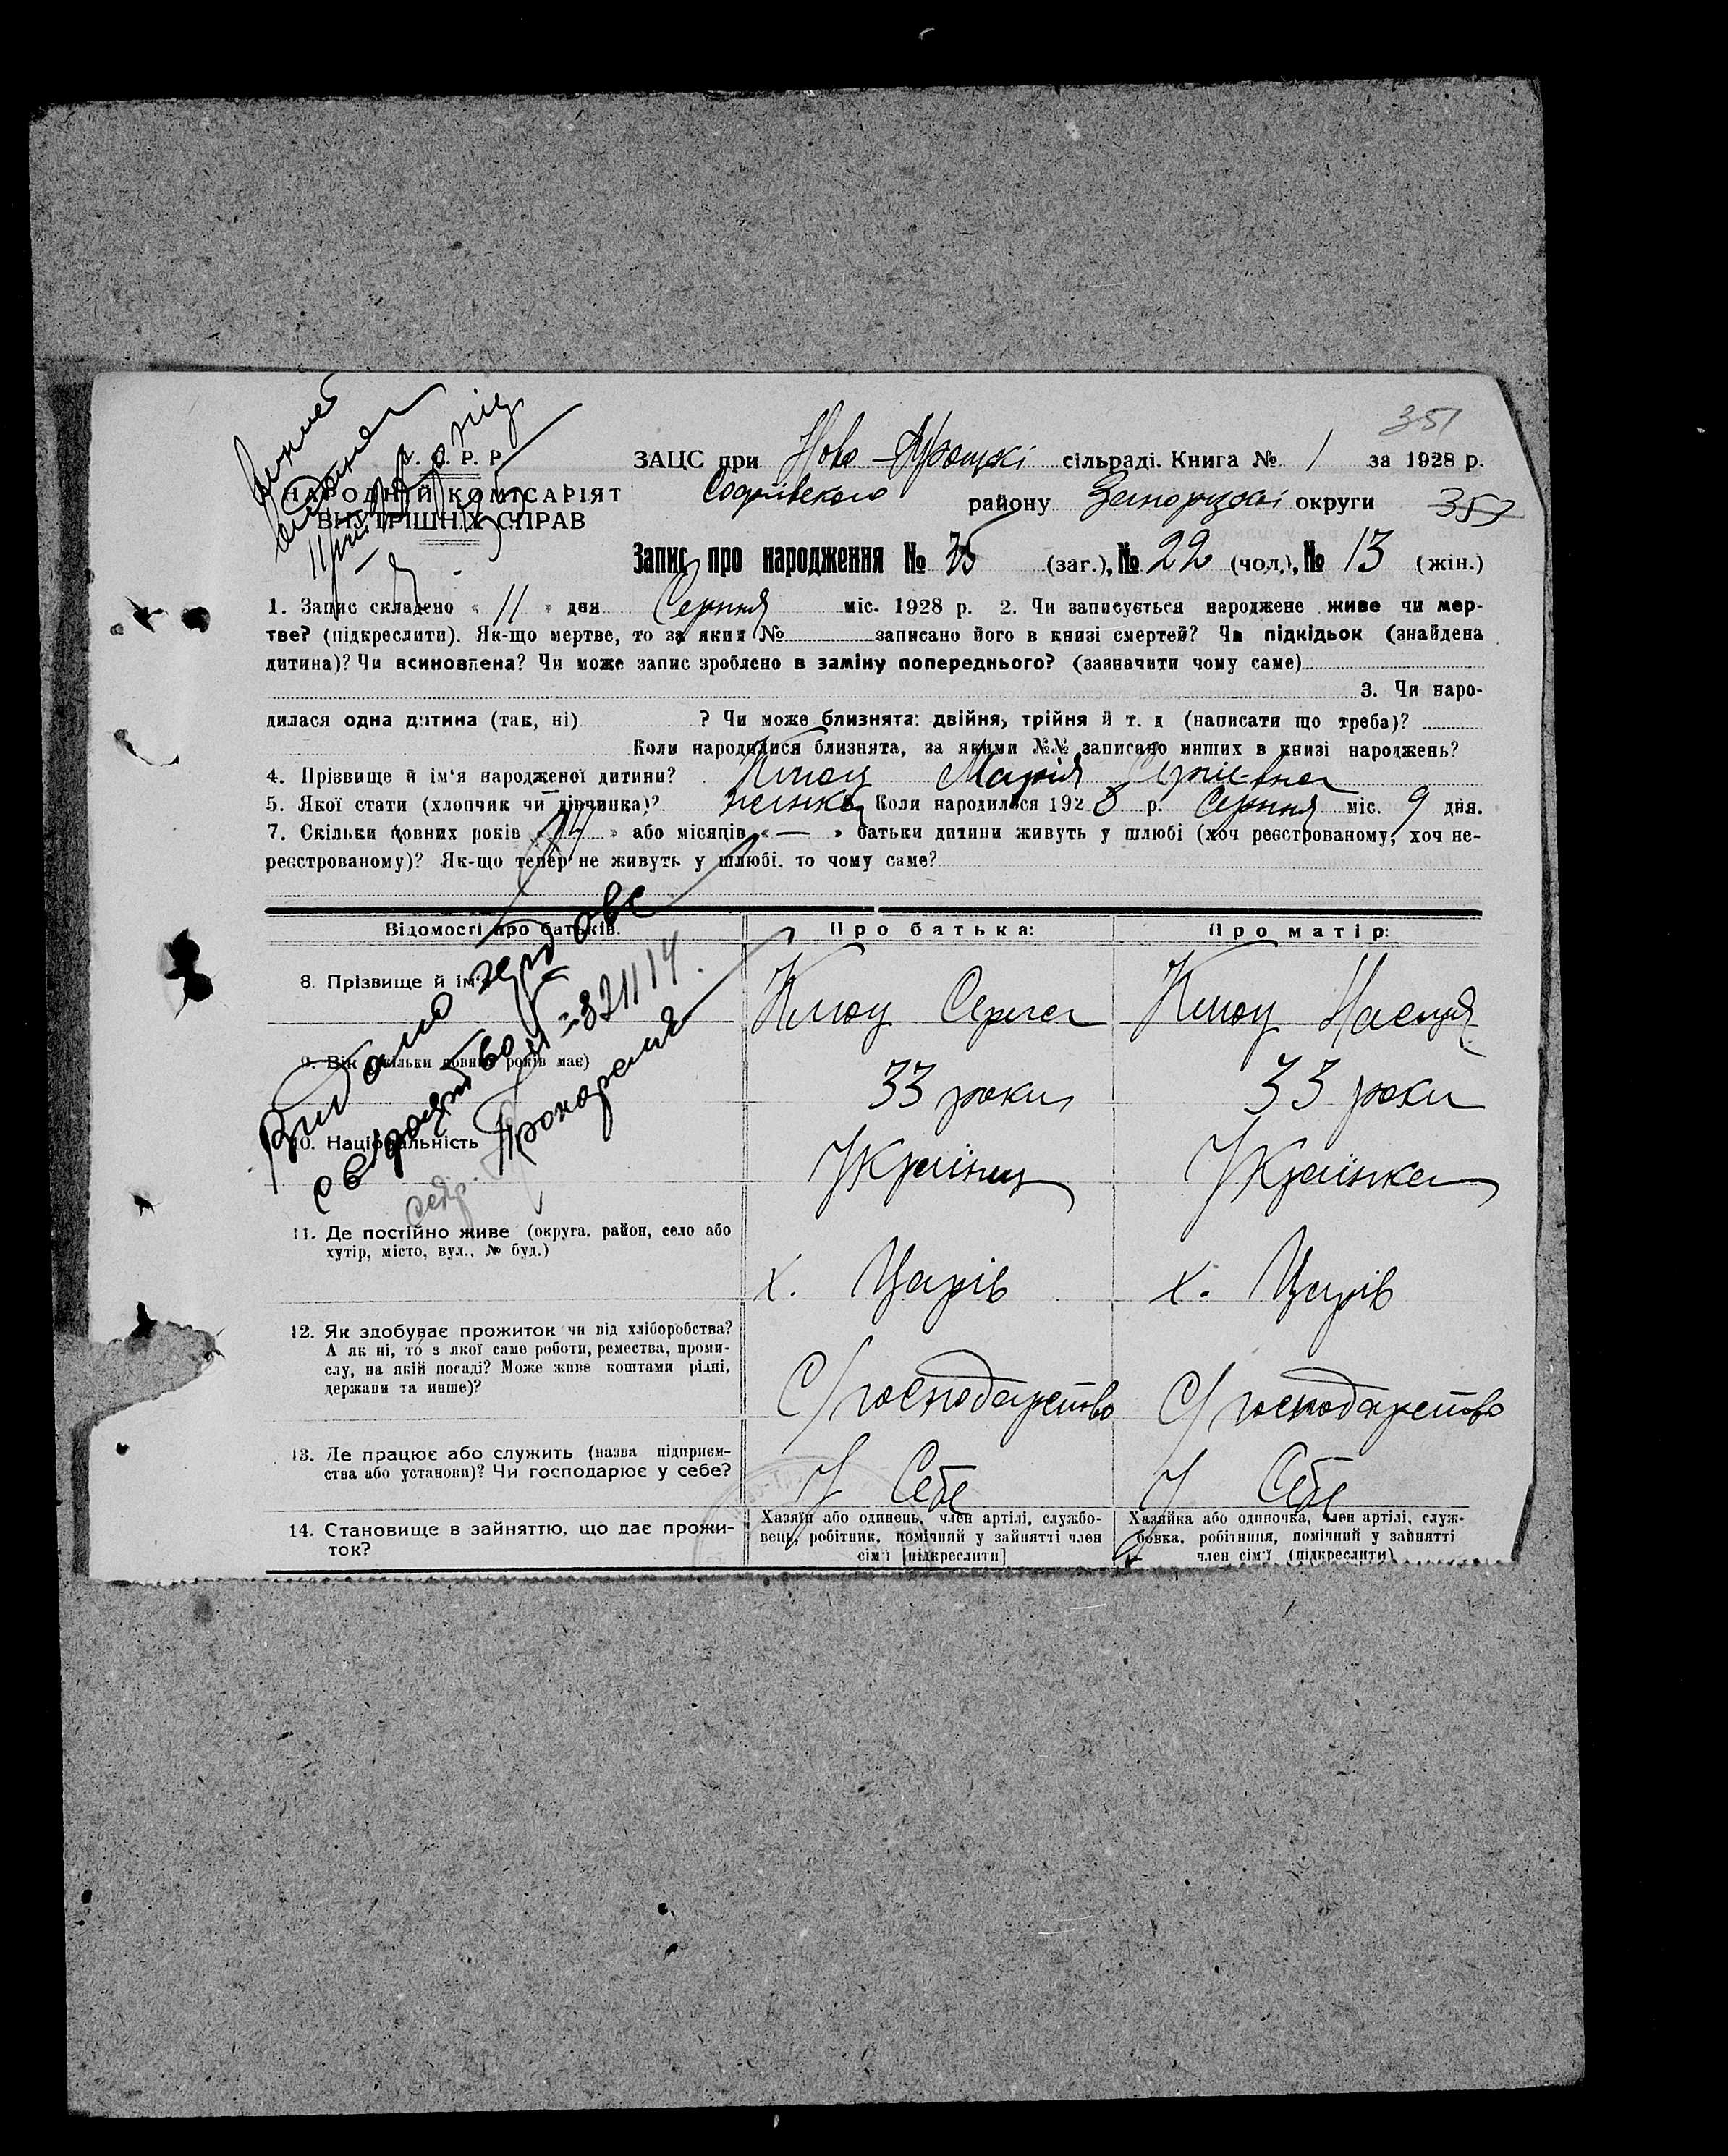 351
У. С. Р. Р.
НАРОДНІЙ КОМІСАРІЯТ
ВНУТРІШНІХ СПРАВ
ЗАЦС при Ново- сільраді. Книга № 1 за 1928 р.
Софіївського району Запорізькі округи 353
Запис про народження № 35 (заг.), № 22 (чол.), № 13 (жін.)
1. Запис складено « 11 » дня Серпня міс. 1928 р. 2. Чи записується народжене живе чи мер-
тве? (підкреслити). Як-що мертве, то за яким № записано його в книзі смертей? Чи підкідьок (знайдена
дитина)? Чи всиновлена? Чи може запис зроблено в заміну попереднього? (зазначити чому саме)
3. Чи наро-
дилася одна дитина (так, ні) ? Чи може близнята: двійня, трійня й т. д (написати що треба)?
Коли народилися близнята, за якими №№ записано инших в книзі народжень?
4. Прізвище й ім'я народженої дитини? Клюц Марія Сергіевна
5. Якої стати (хлопчяк чи дівчинка)? жінка Коли народилася 1928 р. Серпня міс. 9 дня.
7. Скільки повних років « » або місяців « — » батьки дитини живуть у шлюбі (хоч реєстрованому, хоч не-
реєстрованому)? Як-що тепер не живуть у шлюбі, то чому саме?
Відомості про батьків. Про батька: Про матір:
8. Прізвище й ім'я Клюц Сергей Клюц Настя
9. Вік (скільки повних років має) 33 роки 33 роки
10. Національність Українец Українка
11. Де постійно живе (округа, район, село або
хутір, місто, вул., № буд.)
х. Царів х. Царів
12. Як здобуває прожиток чи від хліборобства?
А як ні, то з якої саме роботи, ремества, проми-
слу, на якій посаді? Може живе коштами рідні,
держави та инше)?
С/господарство С/господарство
13. Де працює або служить (назва підприєм-
ства або установи)? Чи господарює у себе?
У Себе У Себе
14. Становище в зайняттю, що дає прожи-
ток?
Хазяїн або одинець, член артілі, службо-
вець, робітник, помічний у зайнятті член
сім'ї [підкреслити]
Хазяйка або одиночка, член артілі, служ-
бовка, робітниця, помічний у зайнятті
член сім'ї (підкреслити)
Видано
свідоцтво
321114